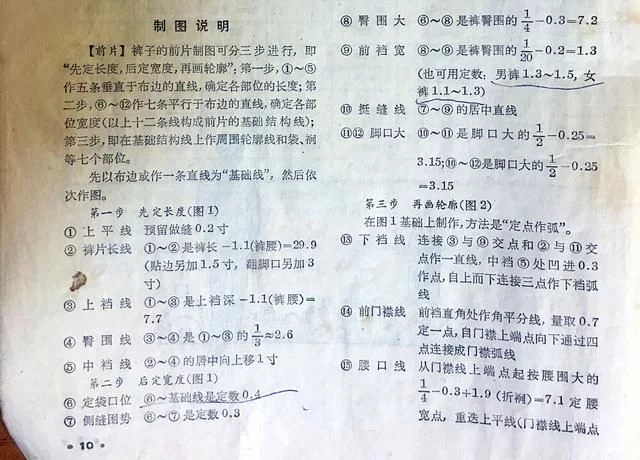 制图说明
【前片】裤子的前片制图可分三步进行，即
“先定长度，后定宽度，再画轮廓”：第一步，①～⑤
作五条垂直于布边的直线，确定各部位的长度；第
二步，⑥～⑫作七条平行于布边的直线，确定各部
位宽度(以上十二条线构成前片的基础结构线)；
第三步，即在基础结构线上作周围轮廓线和袋、裥
等七个部位。
先以布边或作一条直线为“基础线”，然后依
次作图。
第一步 先定长度(图1)
① 上平线 预留做缝0.2寸
② 裤片长线 ①～②是裤长－1.1(裤腰)=29.9
(贴边另加1.5寸，翻脚口另加3
寸)
③ 上裆线 ①～③是上裆深－1.1(裤腰)=
7.7
④ 臀围线 ③～④是①～③的1/3≈2.6
⑤ 中裆线 ②～④的居中向上移1寸
第二步 后定宽度(图1)
⑥ 定袋口位 ⑥～基础线是定数0.4
⑦ 侧缝困势 ⑥～⑦是定数0.3
• 10 •
⑧ 臀围大 ⑥～⑧是裤臀围的1/4－0.3=7.2
⑨ 前裆宽 ⑧～⑨是裤臀围的1/20－0.2=1.3
(也可用定数：男裤1.3～1.5，女
裤1.1～1.3)
⑩ 挺缝线 ⑦～⑨的居中直线
⑪⑫ 脚口大 ⑩～⑪是脚口大的1/2－0.25=
3.15；⑩～⑫是脚口大的1/2－0.25
=3.15
第三步 再画轮廓(图2)
在图1基础上制作，方法是“定点作弧”。
⑬ 下裆线 连接③与⑨交点和②与⑪交
点作一直线，中裆⑤处凹进0.3
作点，自上而下连接三点作下裆弧
线
⑭ 前门襟线 前裆直角处作角平分线，量取0.7
定一点，自门襟上端点向下通过四
点连接成门襟弧线
⑮ 腰口线 从门襟线上端点起按腰围大的
1/4－0.3+1.9(折裥)=7.1定腰
宽点，重迭上平线(门襟线上端点